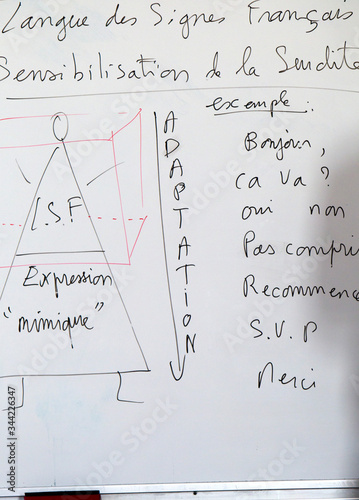 Langue des Signes Français
Sensibilisation de la Surdité
exemple :
L.S.F
Expression
"mimique"
ADAPTATION
Bonjour,
ça va ?
oui non
Pas compri
Recommenc
S.V.P
Merci
Adobe Stock | #344226347